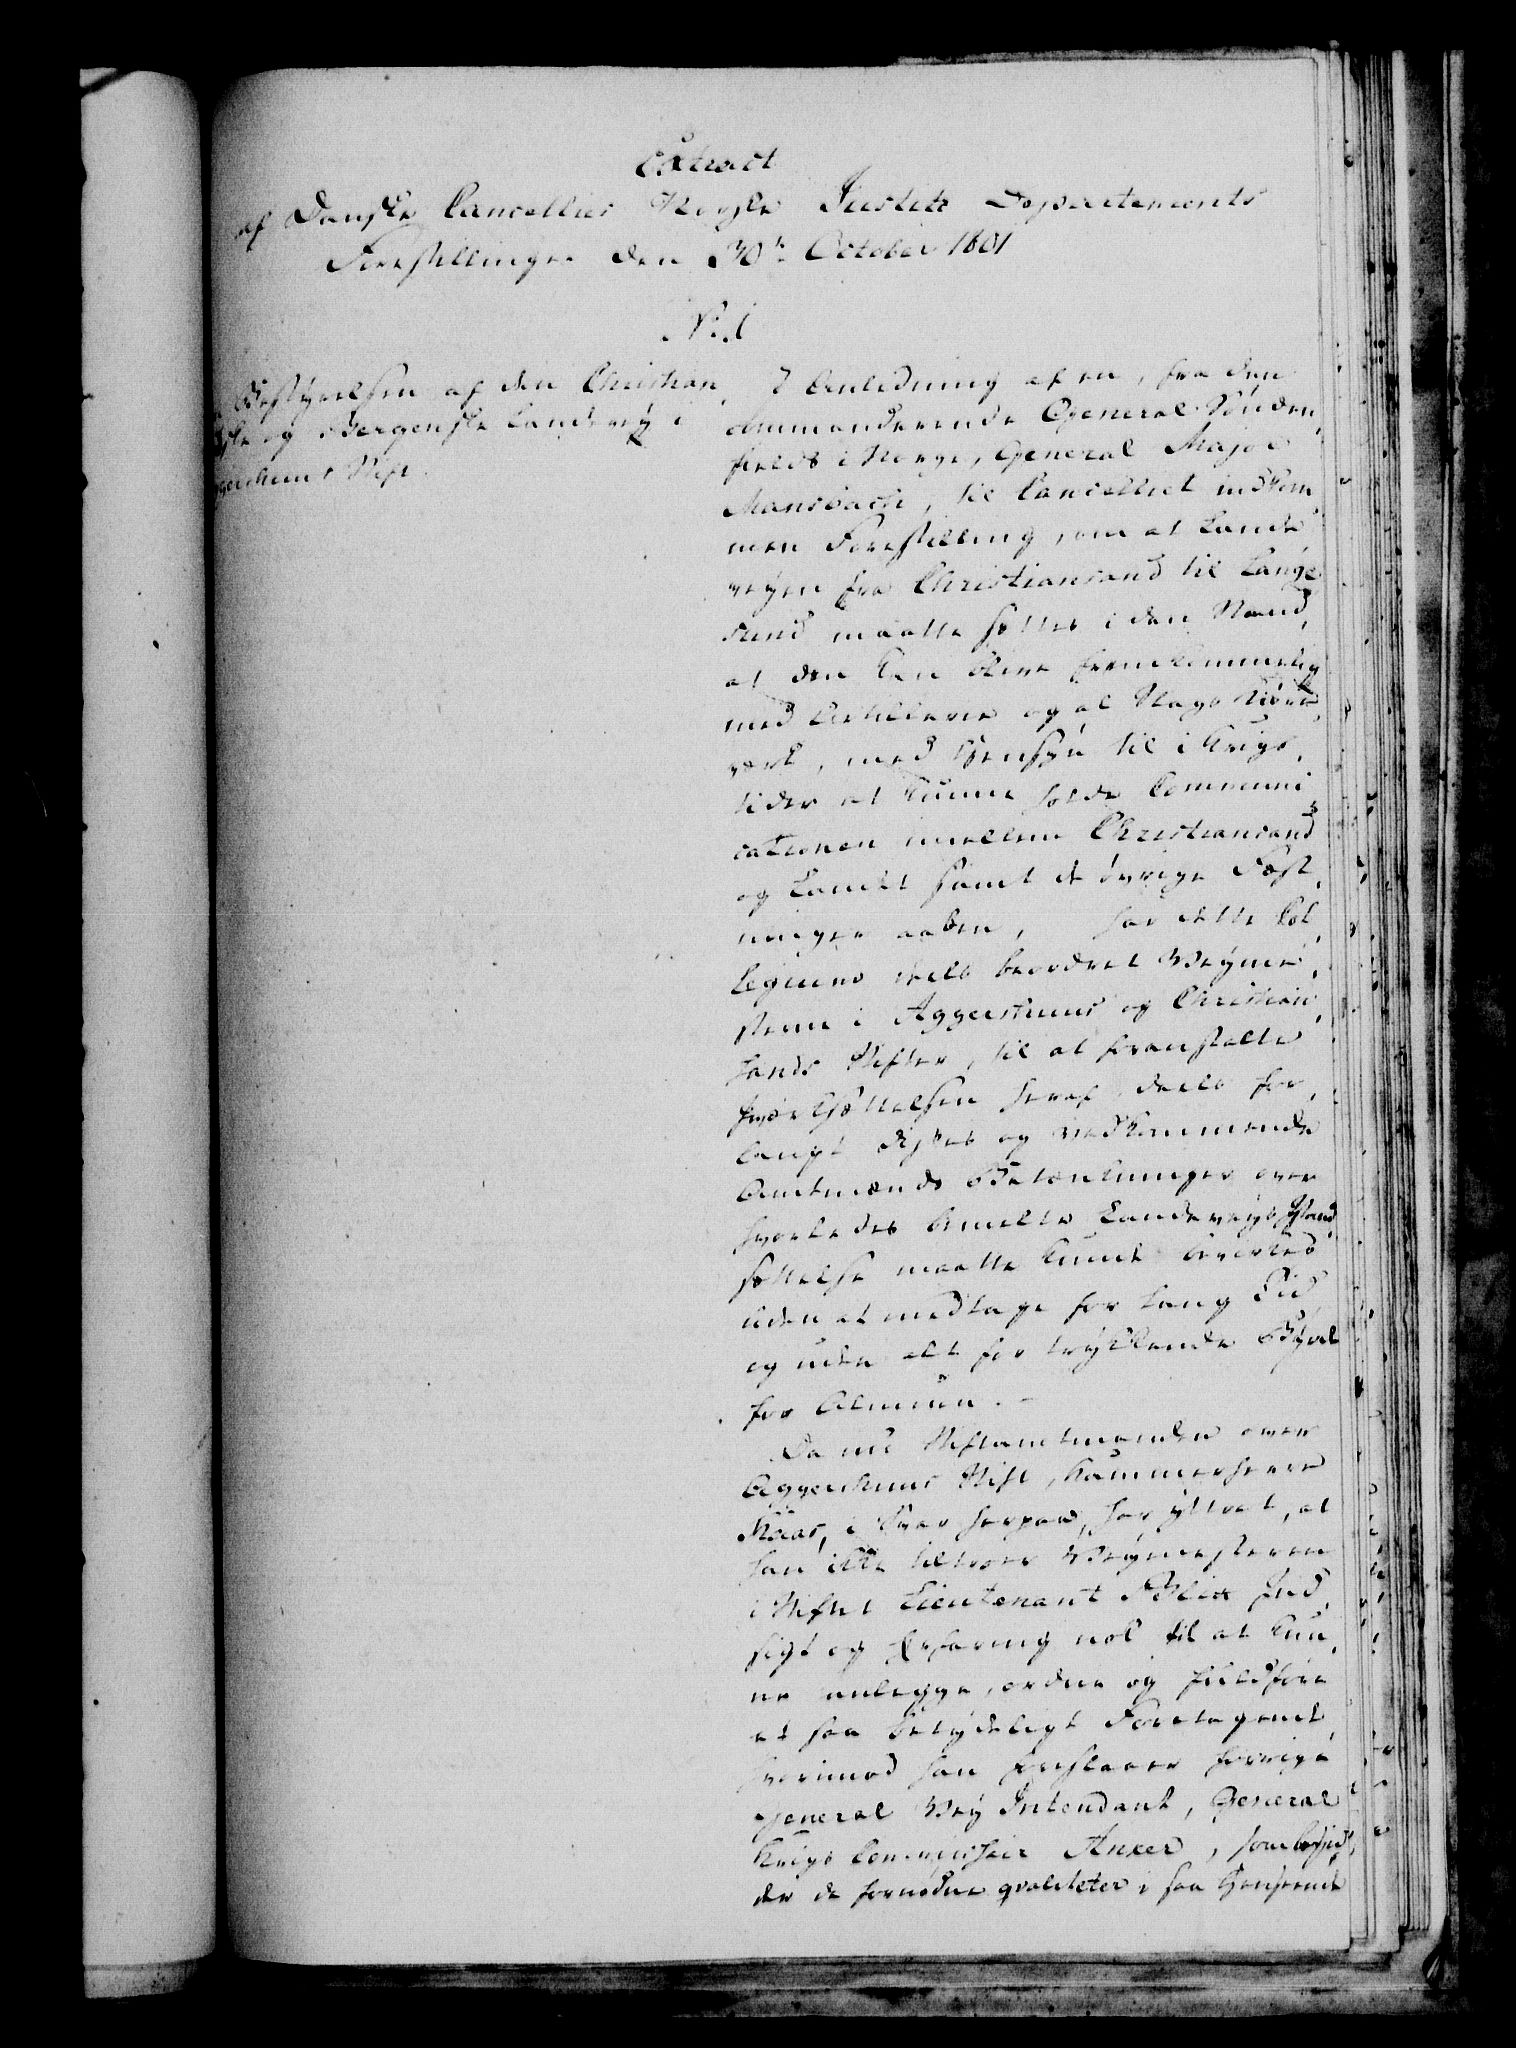 Extract
af Danske Cancellies Norske Justits Departements
Forestillinger den 30te October 1801
No. 1
Bestyrelsen af den Christian
og Bergenske Landevej i
Aggerhuus Stift.
I Anledning af en, fra den
commanderende General Sønden,
fields i Norge, General Major
Mansbach, til Cancelliet indkom,
men Forestilling, om at Lande,
veyen fra Christiansand til Lange,
sund maatte sættes i den Stand,
at den kan blive fremkommelig
med Artillerie og al Slags Kiøre,
værk, med Hensyn til i Krigs,
tider at kunne holde Communi,
cationen mellem Christiansand
og Landet samt de øvrige Fæst,
ninger aaben, har dette Col,
legium deels beordret Veyme,
sterne i Aggershuus og Christian,
sands Stifter, til at foranstalte
Iværksættelsen heraf, deels for,
langt disses og vedkommende
Amtmænds Betænkninger over
hvorledes bemeldte Landeveys Istand,
sættelse maatte kunde iværksættes
uden at medtage for lang Tid
og uden alt for trykkende Byrde
for Almuen.
Da nu Stiftamtmanden over
Aggershuus Stift, Kammerherre
Kaas, i Svar herpaa, har yttret, at
han ikke tiltroer Veymesteren
i Stiftet Lieutenant Blix Ind,
sigt og Erfaring nok til at kun,
ne anlegge, ordne og fuldføre
et saa betydeligt Foretagende,
hvorimod han foreslaaer forrige
General Vey Intendant, General
Krigs Commissair Anker, som besid,
der de fornødne qvaliteter i saa Henseende